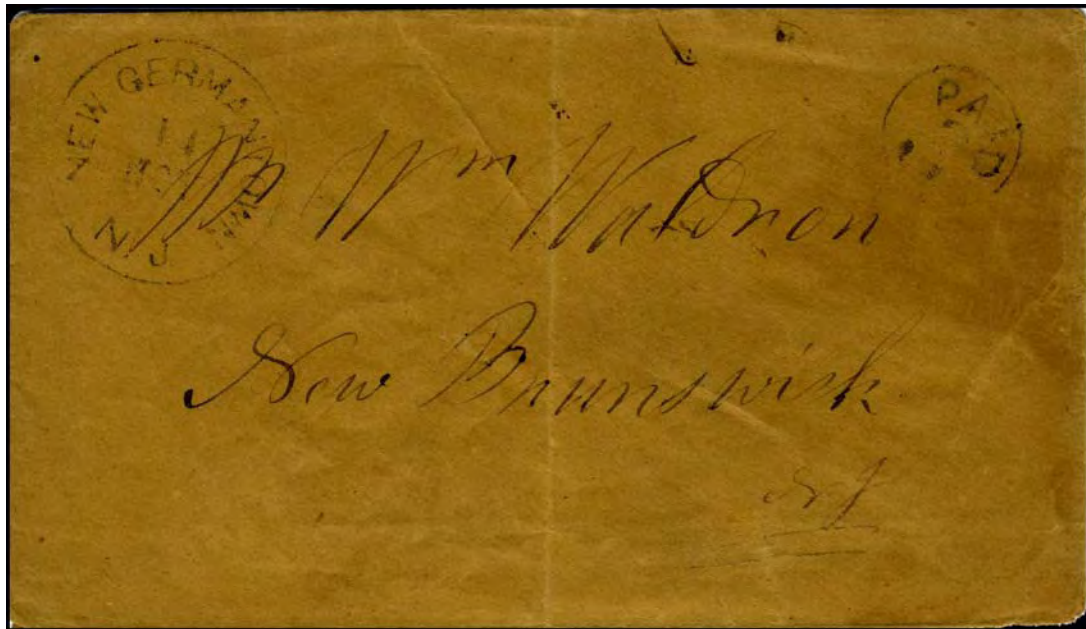 NEW GERMANTOWN
N.J
PAID
Mr Wm Waldron
New Brunswick
NJ